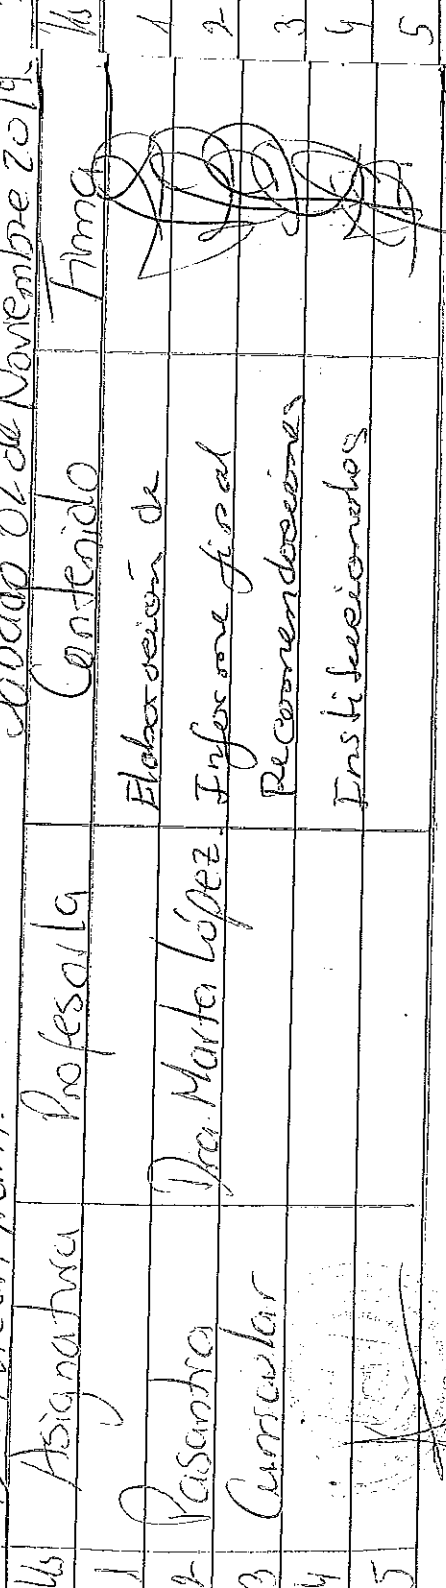 Sábado 02 de Noviembre 2019.
Hs Asignatura Profesor/a Contenido Firma Hs
1 Elaboración de 1
2 Pasantía Dra. Marta López Informe final 2
3 Curricular Recomendaciones 3
4 Institucionales 4
5 5